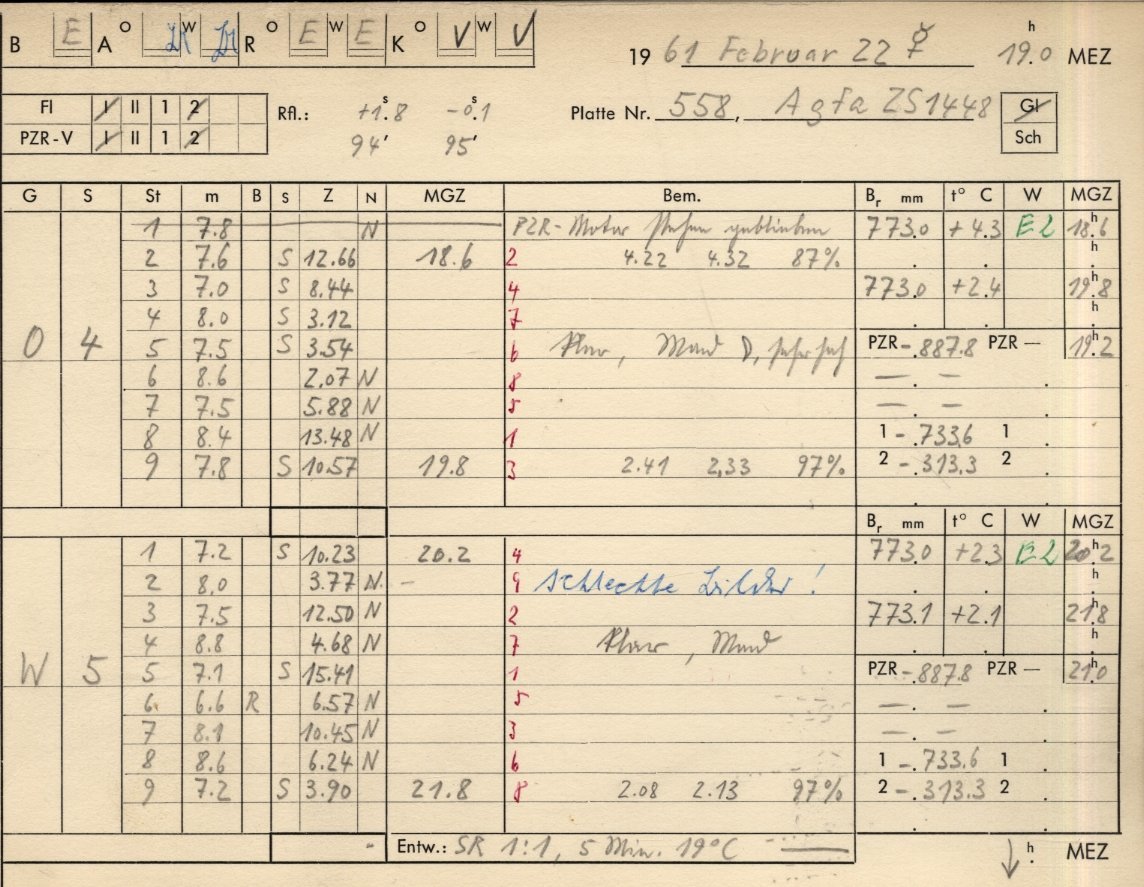 B E A O W R O E W E K O V W V
19 61 Februar 22 ☿ 19.0 h MEZ
FI I II 1 2 Rfl.: +1.8 s -0.1 s Platte Nr. 558, Agfa ZS1448 Gl
PZR-V I II 1 2 94' 95' Sch
G S St m B S Z N MGZ Bem. Br mm t° C W MGZ
1 7.8 N PZR-Motor stehen geblieben 773.0 +4.3 E2 18.6 h
2 7.6 S 12.66 18.6 2 4.22 4.32 87% h
3 7.0 S 8.44 4 773.0 +2.4 19.8 h
4 8.0 S 3.12 7 h
O 4 5 7.5 S 3.54 6 Klar, Mond PZR -.887.8 PZR — 19.2 h
6 8.6 2.07 N 8 — —
7 7.5 5.88 N 5 — —
8 8.4 13.48 N 1 1 -.733.6 1
9 7.8 S 10.57 19.8 3 2.41 2.33 97% 2 -.313.3 2
Br mm t° C W MGZ
1 7.2 S 10.23 20.2 4 773.0 +2.3 E2 20.2 h
2 8.0 3.77 N - 9 schlechte Bilder! h
3 7.5 12.50 N 2 773.1 +2.1 21.8 h
4 8.8 4.68 N 7 Klar, Mond h
W 5 5 7.1 S 15.41 1 PZR -.887.8 PZR — 21.0 h
6 6.6 R 6.57 N 5 — —
7 8.1 10.45 N 3 — —
8 8.6 6.24 N 6 1 -.733.6 1
9 7.2 S 3.90 21.8 8 2.08 2.13 97% 2 -.313.3 2
Entw.: SR 1:1, 5 Min. 19°C — h MEZ